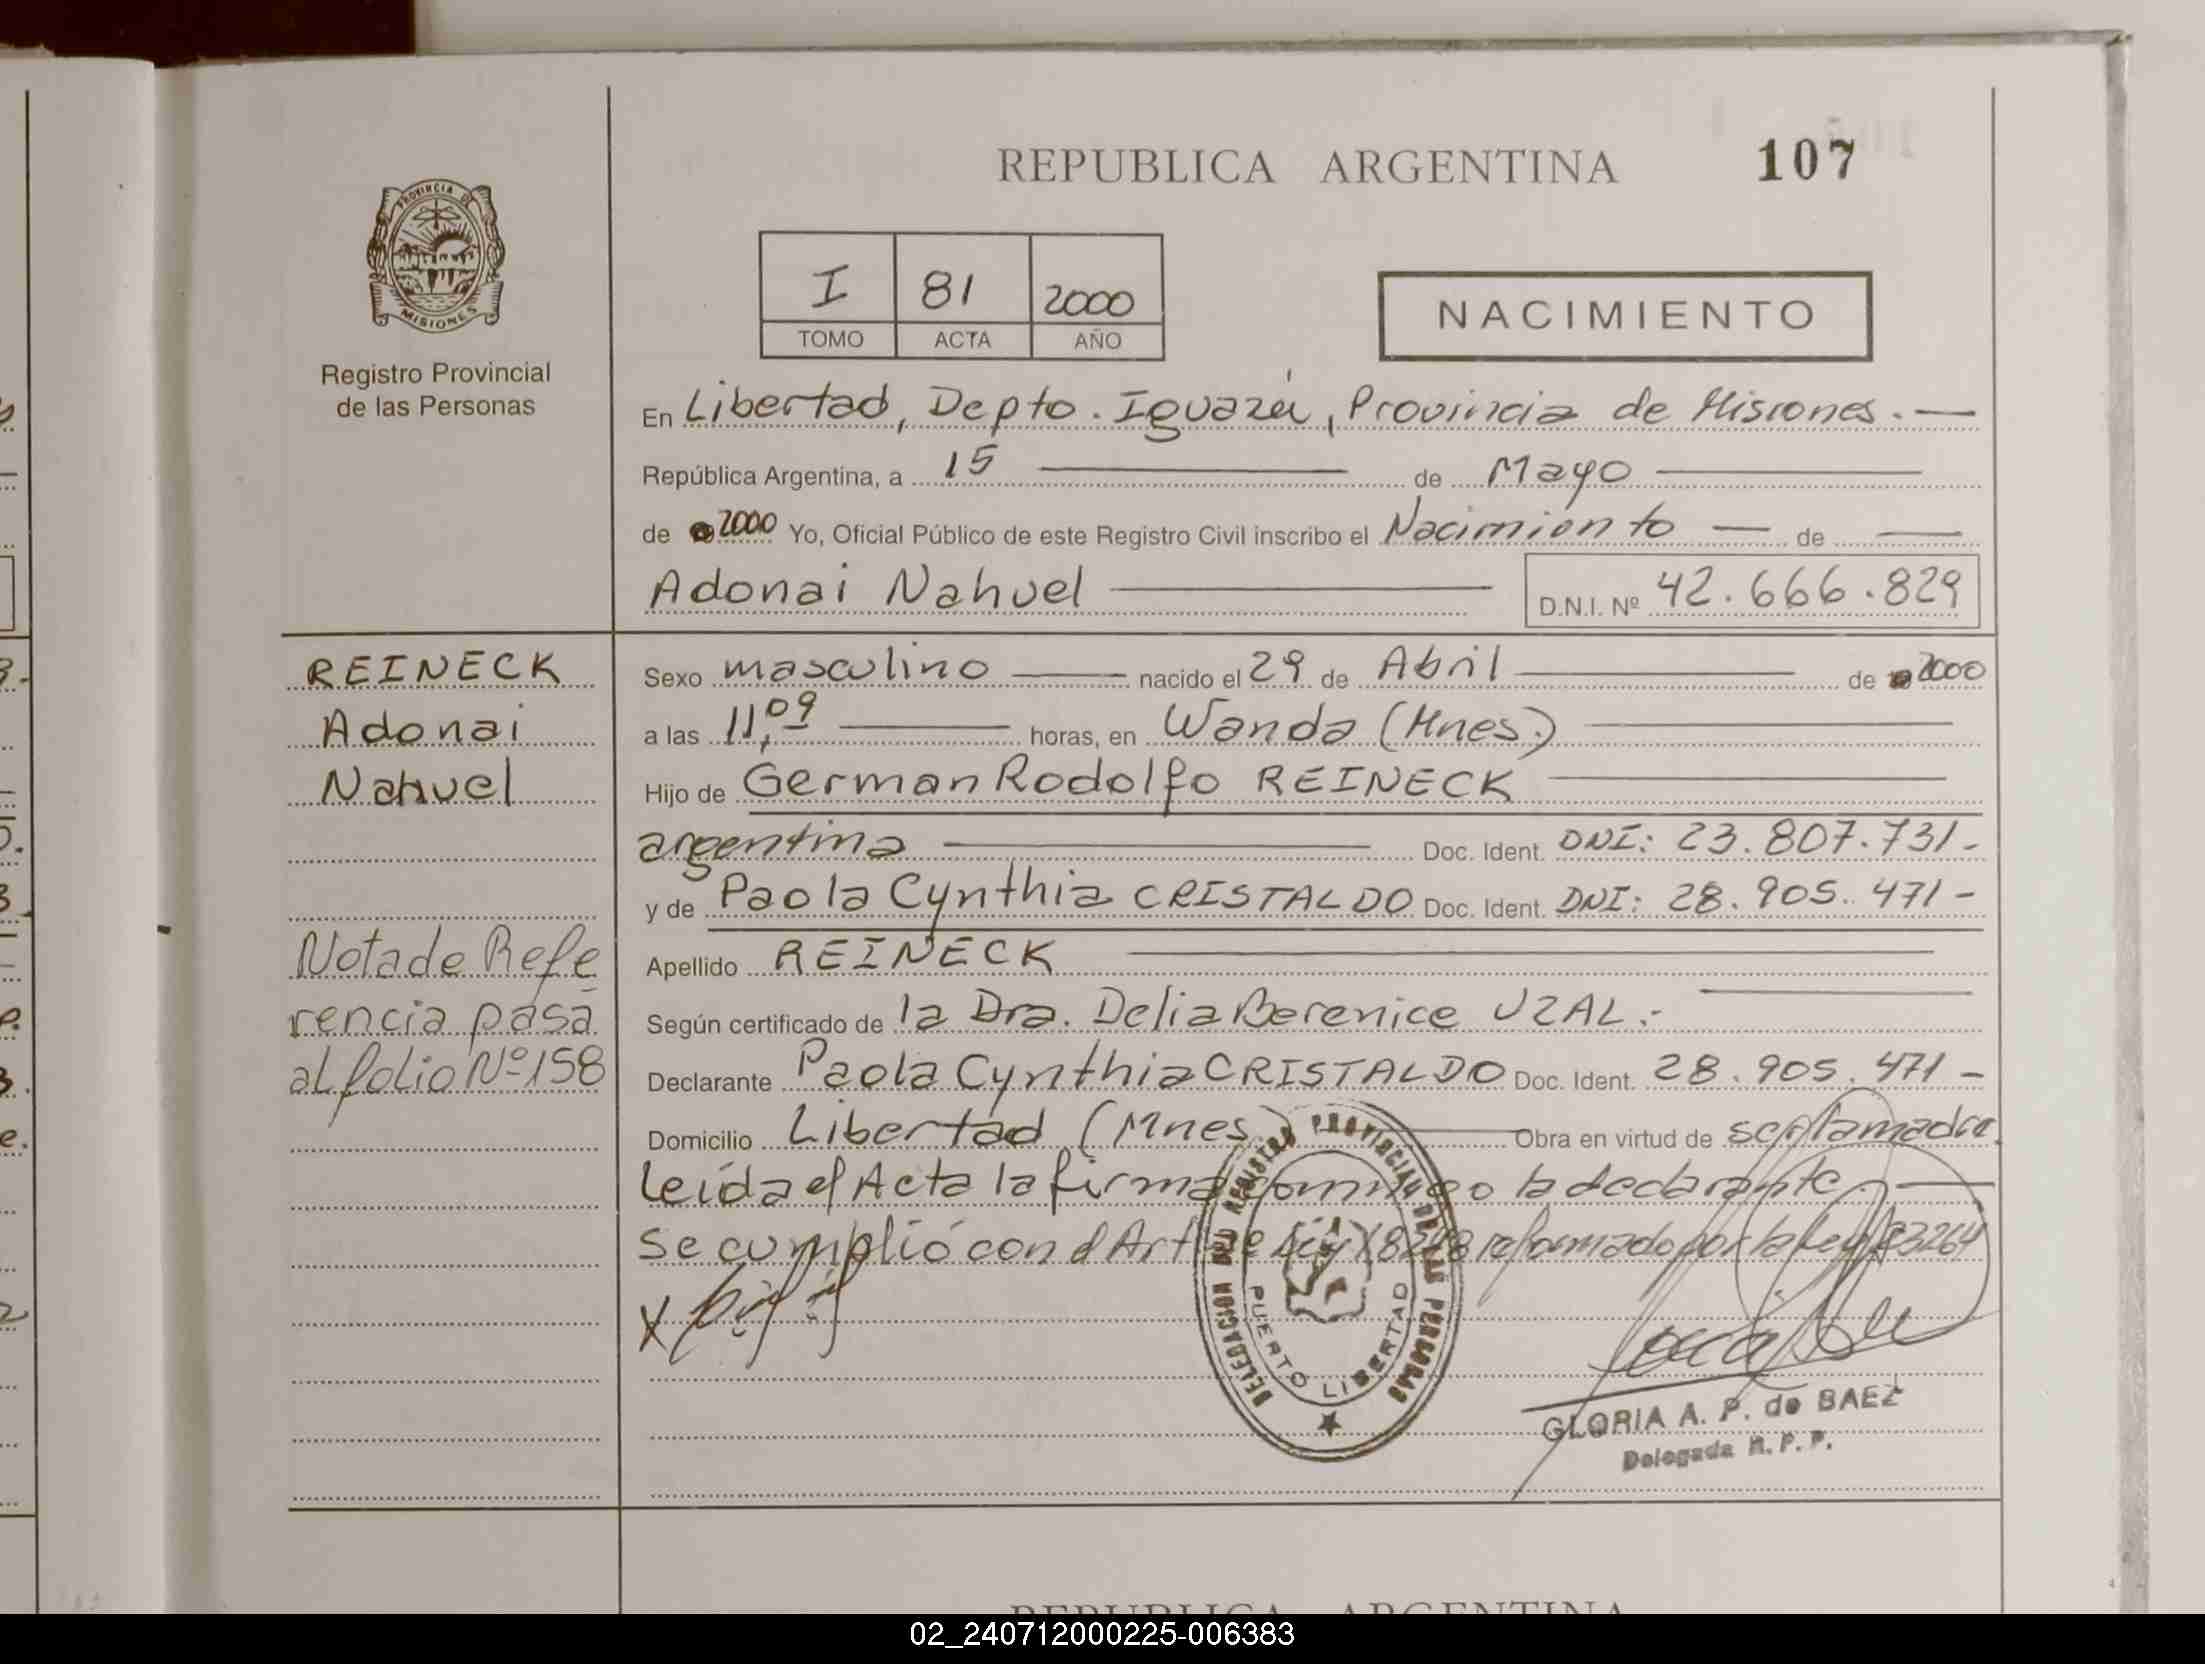 REPUBLICA ARGENTINA 107
PROVINCIA DE MISIONES
Registro Provincial
de las Personas
I 81 2000
TOMO ACTA AÑO
NACIMIENTO
En Libertad, Depto. Iguazú, Provincia de Misiones.
República Argentina, a 15 de Mayo
de 2000 Yo, Oficial Público de este Registro Civil inscribo el Nacimiento de
Adonai Nahuel D.N.I. Nº 42.666.829
REINECK
Adonai
Nahuel
Nota de Refe
rencia pasa
al folio Nº 158
Sexo masculino nacido el 29 de Abril de 2000
a las 11,09 horas, en Wanda (Mnes.)
Hijo de German Rodolfo REINECK
argentina Doc. Ident. DNI: 23.807.731-
y de Paola Cynthia CRISTALDO Doc. Ident. DNI: 28.905.471-
Apellido REINECK
Según certificado de la Dra. Delia Berenice UZAL.-
Declarante Paola Cynthia CRISTALDO Doc. Ident. 28.905.471-
Domicilio Libertad (Mnes.) Obra en virtud de ser la madre.
Leída el Acta la firma conmigo la declarante.
Se cumplió con el Art de Ley 18248 reformado por la Ley 23264
X
DELEGACION DEL REGISTRO PROVINCIAL DE LAS PERSONAS
PUERTO LIBERTAD
GLORIA A. P. de BAEZ
Delegada R. P. P.
REPUBLICA ARGENTINA
02_240712000225-006383